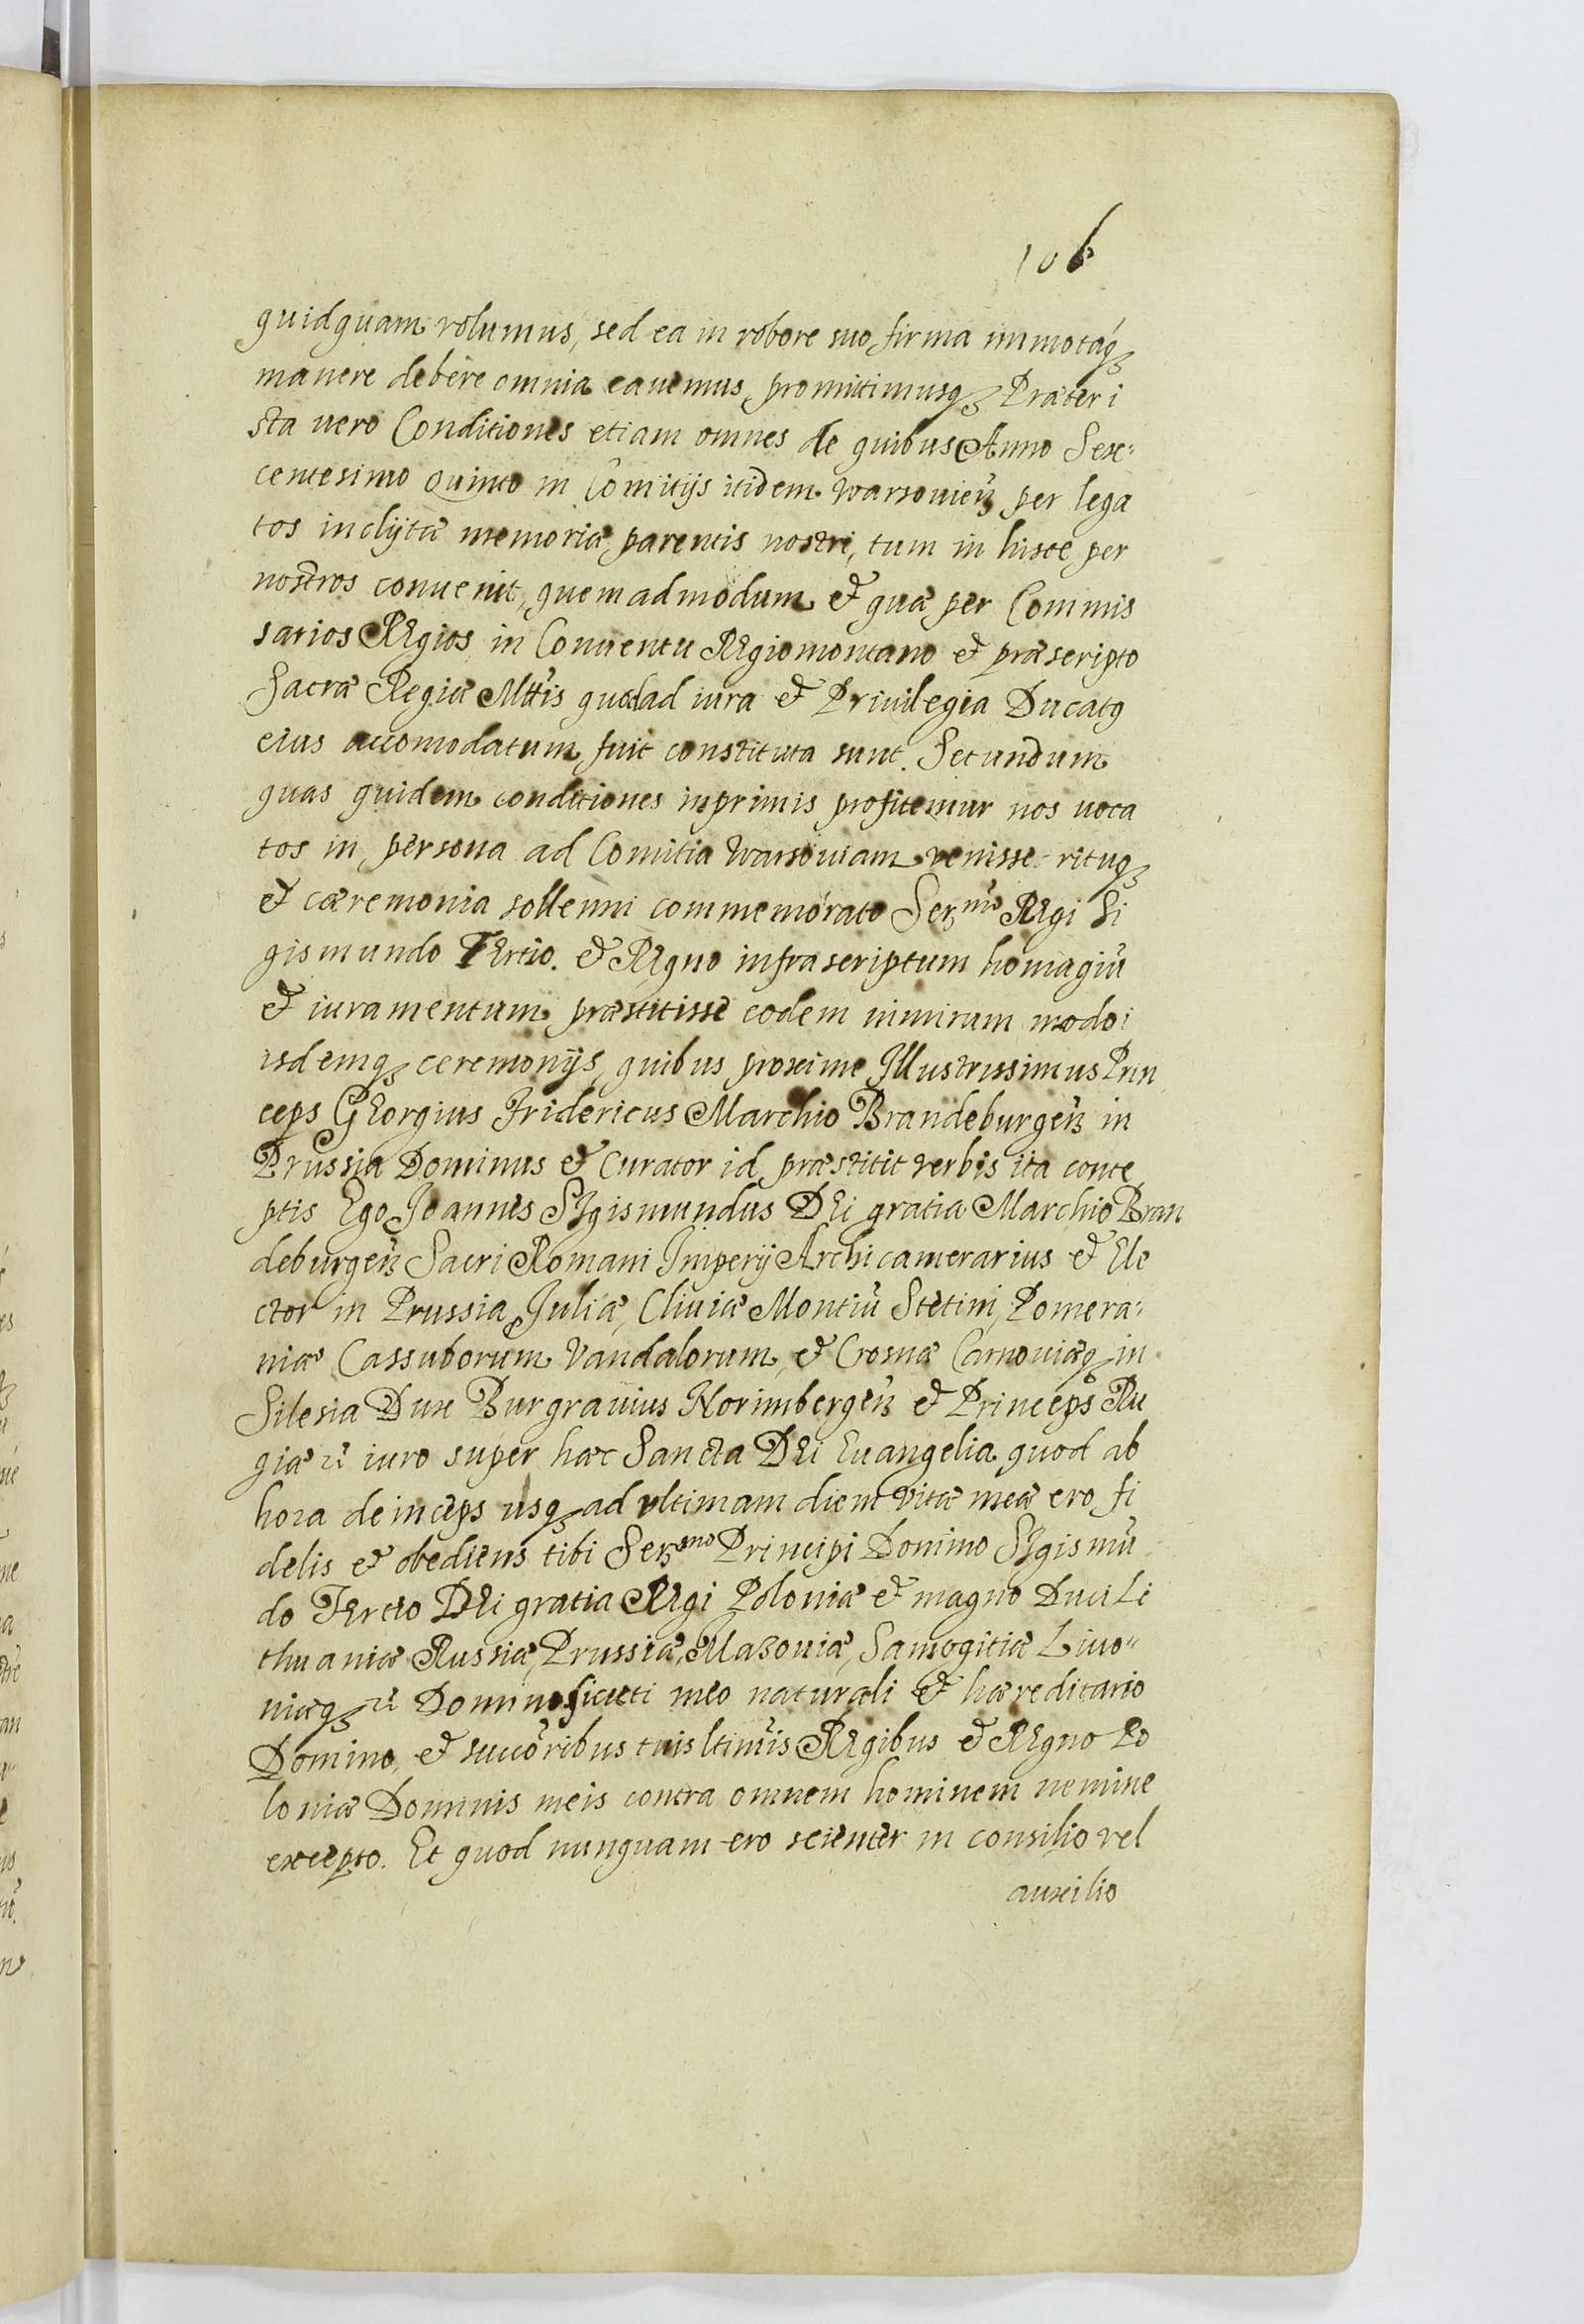 106
quidquam volumus, sed ea in robore suo firma immotaq́ꝫ
manere debere omnia cavemus, promittimusqꝫ Præter i
sta vero Conditiones etiam omnes de quibus Anno Sex:
centesimo Quinto in Comitijs itidem Warsovieñ per lega
tos inclijtæ memoriæ parentis nostri, tum in hisce per
nostros convenit, quemadmodum et quæ per Commis
sarios REgios in Conventu REgiomontano et præscripto
Sacræ Regiæ Mttis quod ad iura et Privilegia Ducatꝯ
eius accomodatum fuit constituta sunt. Secundum
quas quidem conditiones inprimis profitemur nos voca
tos in persona ad Comitia Warsoviam venisse rituqꝫ
et cæremonia sollenni commemorato Serꝫmo REgi Si
gismundo TErtio. et REgno infrascriptum homagiũ
et iuramentum præstitisse eodem nimirum modo i
isdemqꝫ ceremonijs, quibus proxime Illustrissimus Prin
ceps GEorgius Fridericus Marchio Brandeburgeñ in
Prussia Dominus et Curator id præstitit verbis ita conce
ptis Ego Joannes SIgismundus DEi gratia Marchio Bran
deburgeñ Sacri Romani Imperij Archicamerarius et Ele
ctor in Prussia Juliæ, Cliviæ Montiũ Stetini, Pomera:
niæ Cassuborum Vandalorum, et Crosnæ Carnoviæqꝫ in
Silesia Dux Burgravius Norimbergeñ et Princeps Ru
giæ ꝛc̃ iuro super hæc Sancta DEi Evangelia quod ab
hora deinceps usqꝫ ad ultimam diem vitæ meæ ero fi
delis et obediens tibi Serꝫmo Principi Domino SIgismũ
do TErtio DEi gratia REgi Poloniæ et magno Duci Li
thuaniæ Russiæ, Prussiæ, Mazoviæ, Samogitiæ Livo"
niæqꝫ ꝛc̃ Domino sicuti meo naturali et hæreditario
Domino, et succõribus tuis ltimĩs REgibus et REgno Po
loniæ Dominis meis contra omnem hominem nemine
excepto. Et quod nunquam ero scienter in consilio vel
auxilio